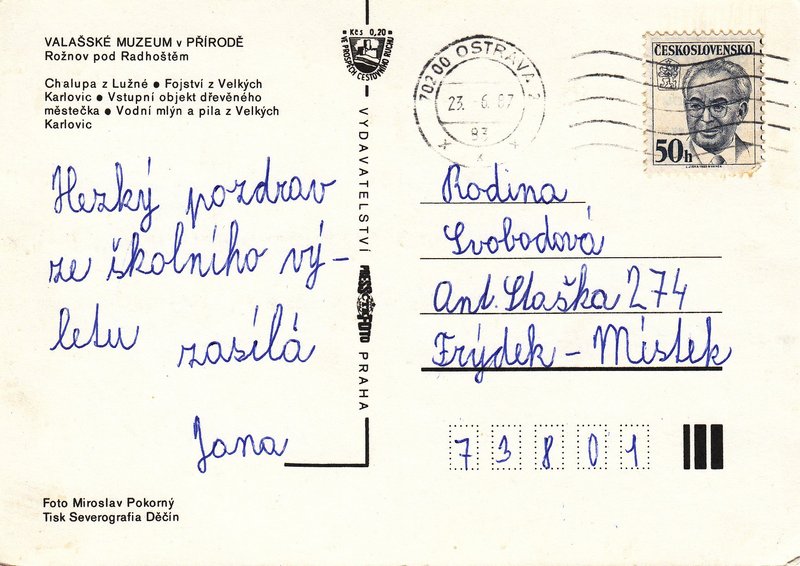 VALAŠSKÉ MUZEUM v PŘÍRODĚ
Rožnov pod Radhoštěm
Chalupa z Lužné ● Fojství z Velkých
Karlovic ● Vstupní objekt dřevěného
městečka ● Vodní mlýn a pila z Velkých
Karlovic
Hezký pozdrav
ze školního vý-
letu zasílá
Jana
Foto Miroslav Pokorný
Tisk Severografia Děčín
Kčs 0,20
VE PROSPĚCH CESTOVNÍHO RUCHU
VYDAVATELSTVÍ
PRESSFOTO
PRAHA
70200 OSTRAVA 2
23.-6.87
ČESKOSLOVENSKO
50h
Rodina
Svobodová
Ant. Staška 274
Frýdek - Místek
73801